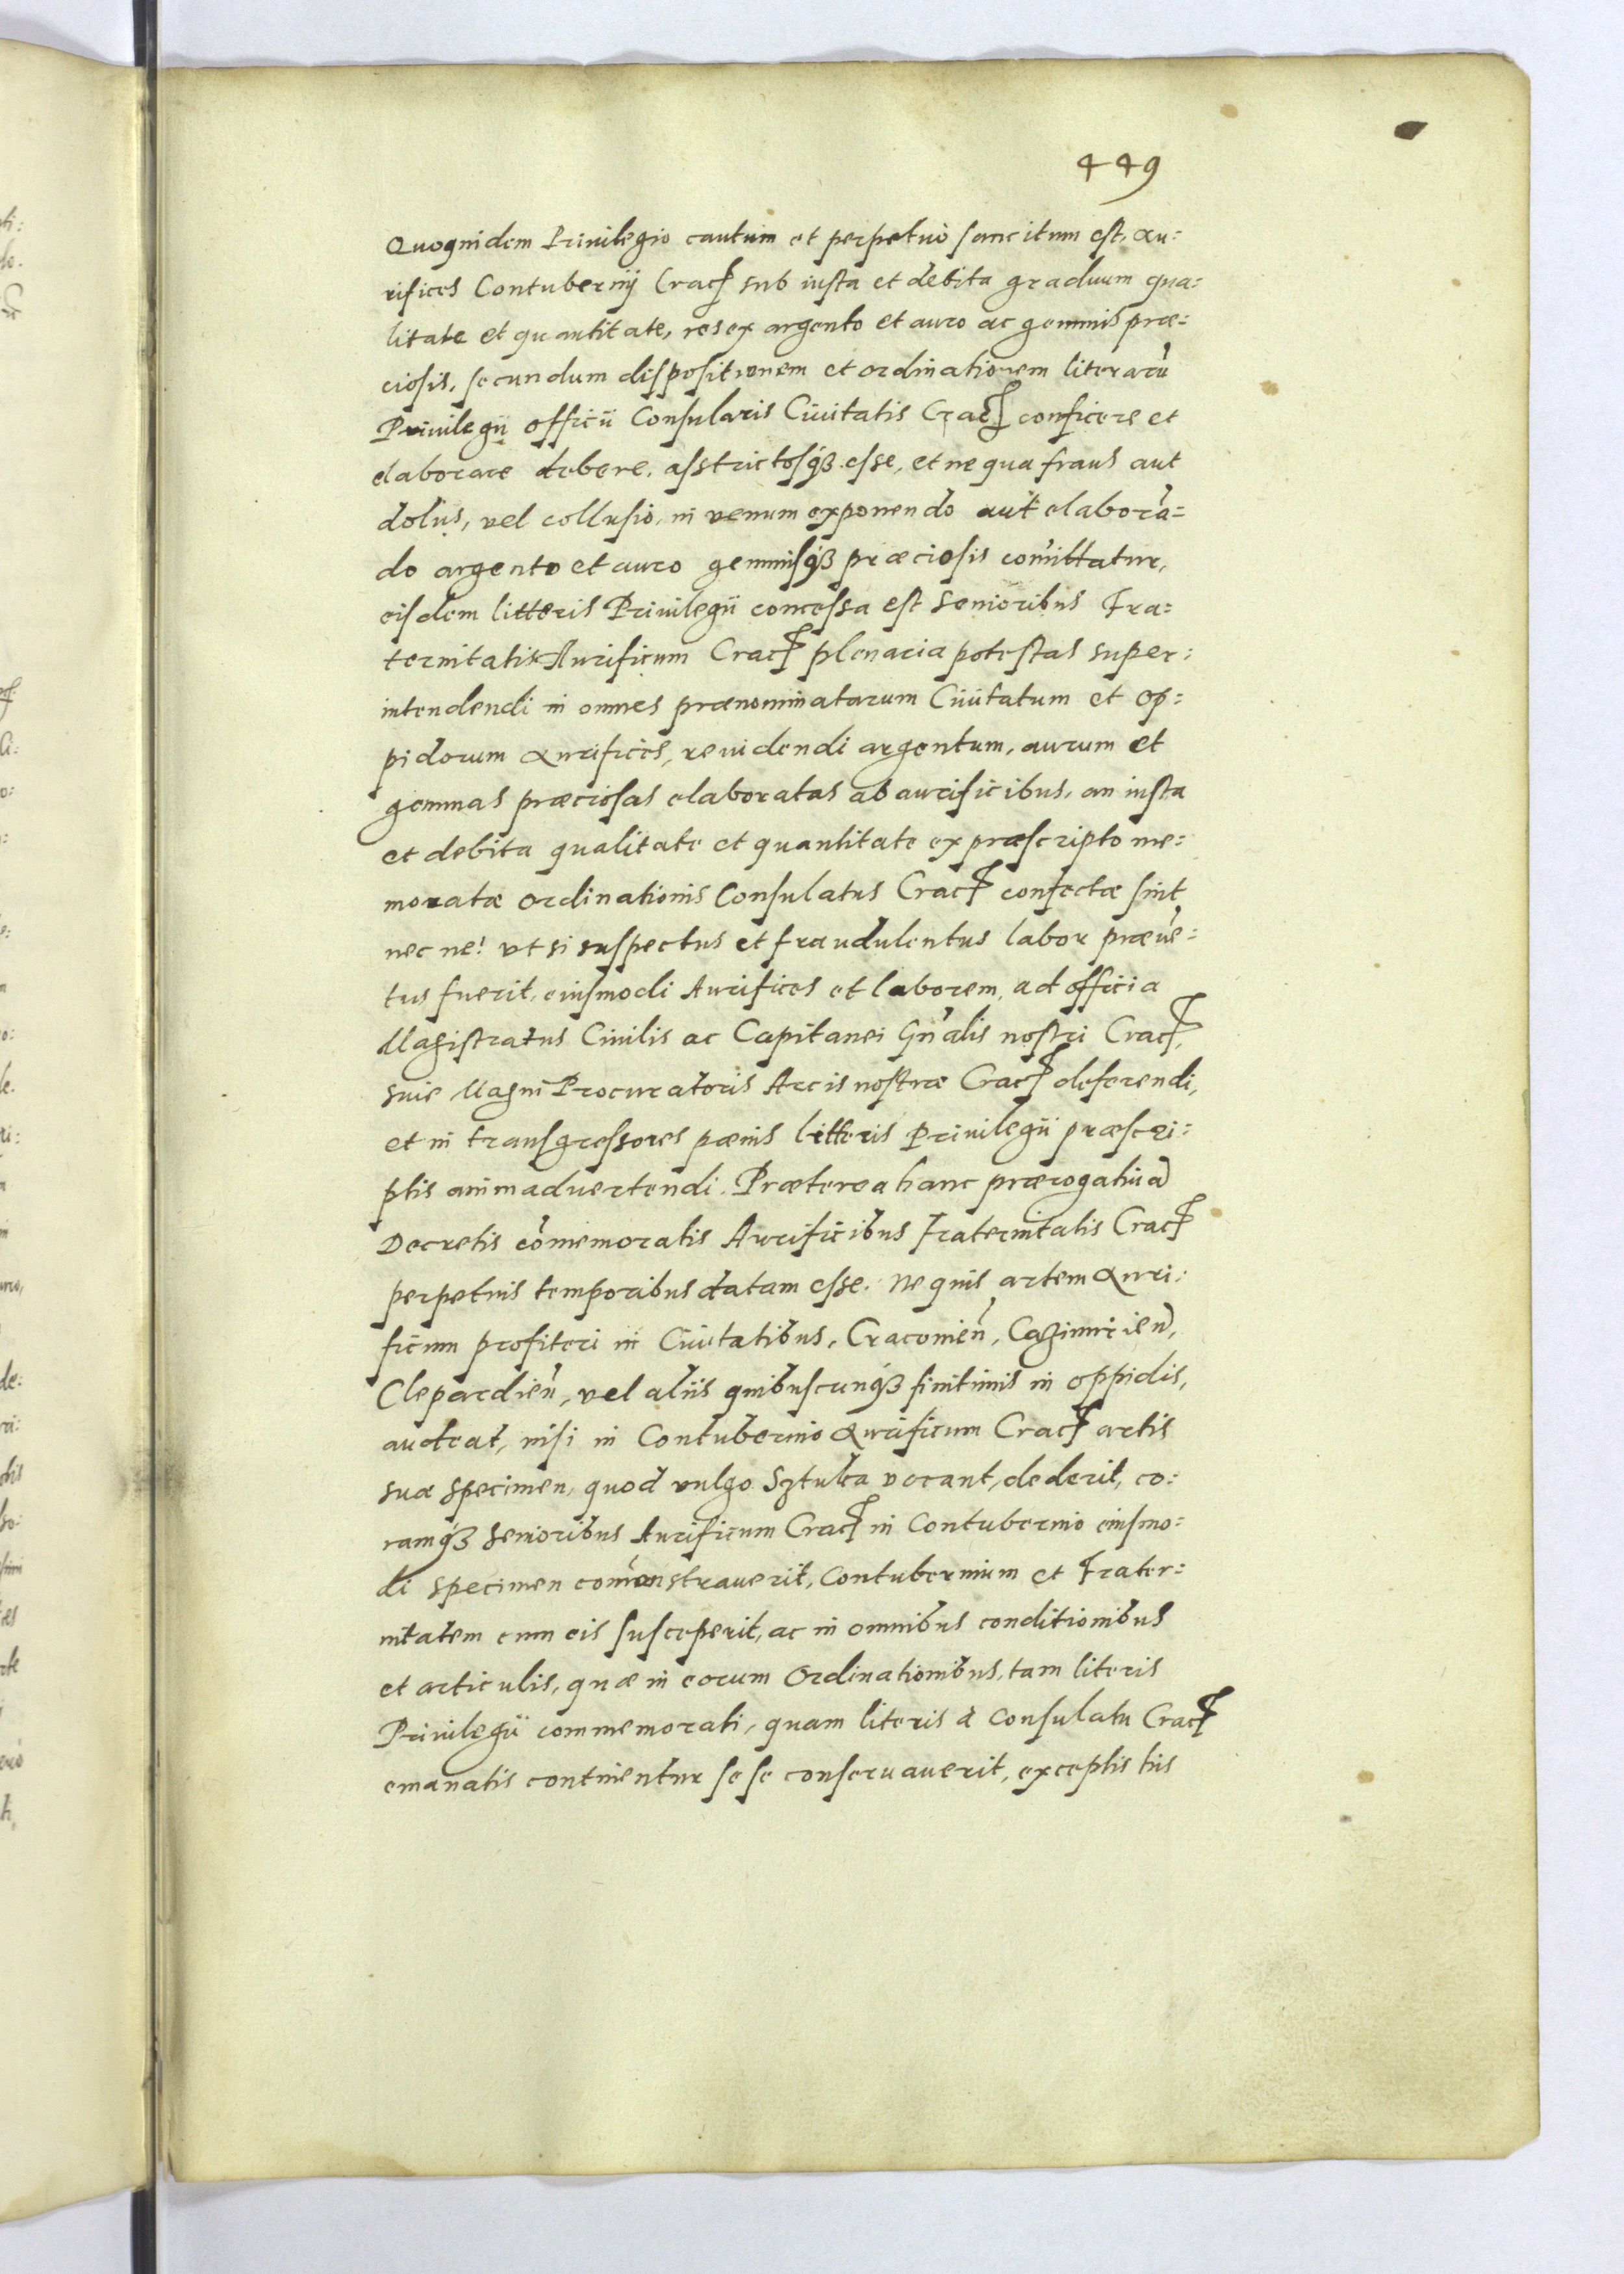 449
Quoquidem Priuilegio cautum et perpetuo sancitum est, au:
rifices Contubernij Crac sub iusta et debita graduum qua:
litate et quantitate, res ex argento et auro ac gemmis præ:
ciosis, secundum dispositionem et ordinationem literarū
Priuilegii officii Consularis Ciuitatis Crac conficere et
elaborare debere, asstrictosq́ꝫ esse, et ne qua fraus aut
dolus, vel collusio, in venum exponendo aut elaborā=
do argento et auro gemmisq́ꝫ præciosis com̄ittatur,
eisdem litteris Priuilegii concessa est senioribus Fra=
ternitatis Aurificum Crac plenaria potestas super:
intendendi in omnes prænominatarum Ciuitatum et op=
pidorum Aurifices, reuidendi argentum, aurum et
gemmas præciosas elaboratas ab aurificibus, an iusta
et debita qualitate et quantitate ex præscripto me:
moratæ ordinationis Consulatus Crac confectæ sint
nec ne! vt si suspectus et fraudulentus labor præuē=
tus fuerit, eiusmodi Aurifices et laborem, ad officia
Magistratus Ciuilis ac Capitanei Gn̄alis nostri Crac,
siue Magni Procuratoris Arcis nostræ Crac deferendi,
et in transgressores pænis litteris Priuilegii præscri:
ptis animaduertendi. Præterea hanc prærogatiuā
Decretis com̄emoratis Aurificibus Fraternitatis Crac
perpetuis temporibus datam esse. Ne quis artem Auri:
ficum profiteri in Ciuitatibus, Cracouien̄, Cazimirien̄,
Clepardien̄, vel aliis quibuscunq́ꝫ finitimis in oppidis,
audeat, nisi in Contubernio Aurificum Crac artis
suæ specimen, quod vulgo Sztuka vocant, dederit, co:
ramq́ꝫ senioribus Aurificum Crac in Contubernio eiusmo:
di specimen com̄onstrauerit, Contubernium et Frater=
nitatem cum eis susceperit, ac in omnibus conditionibus
et articulis, quæ in eorum Ordinationibus, tam literis
Priuilegii commemorati, quam literis à Consulatu Crac
emanatis continentur sese conseruauerit, exceptis his